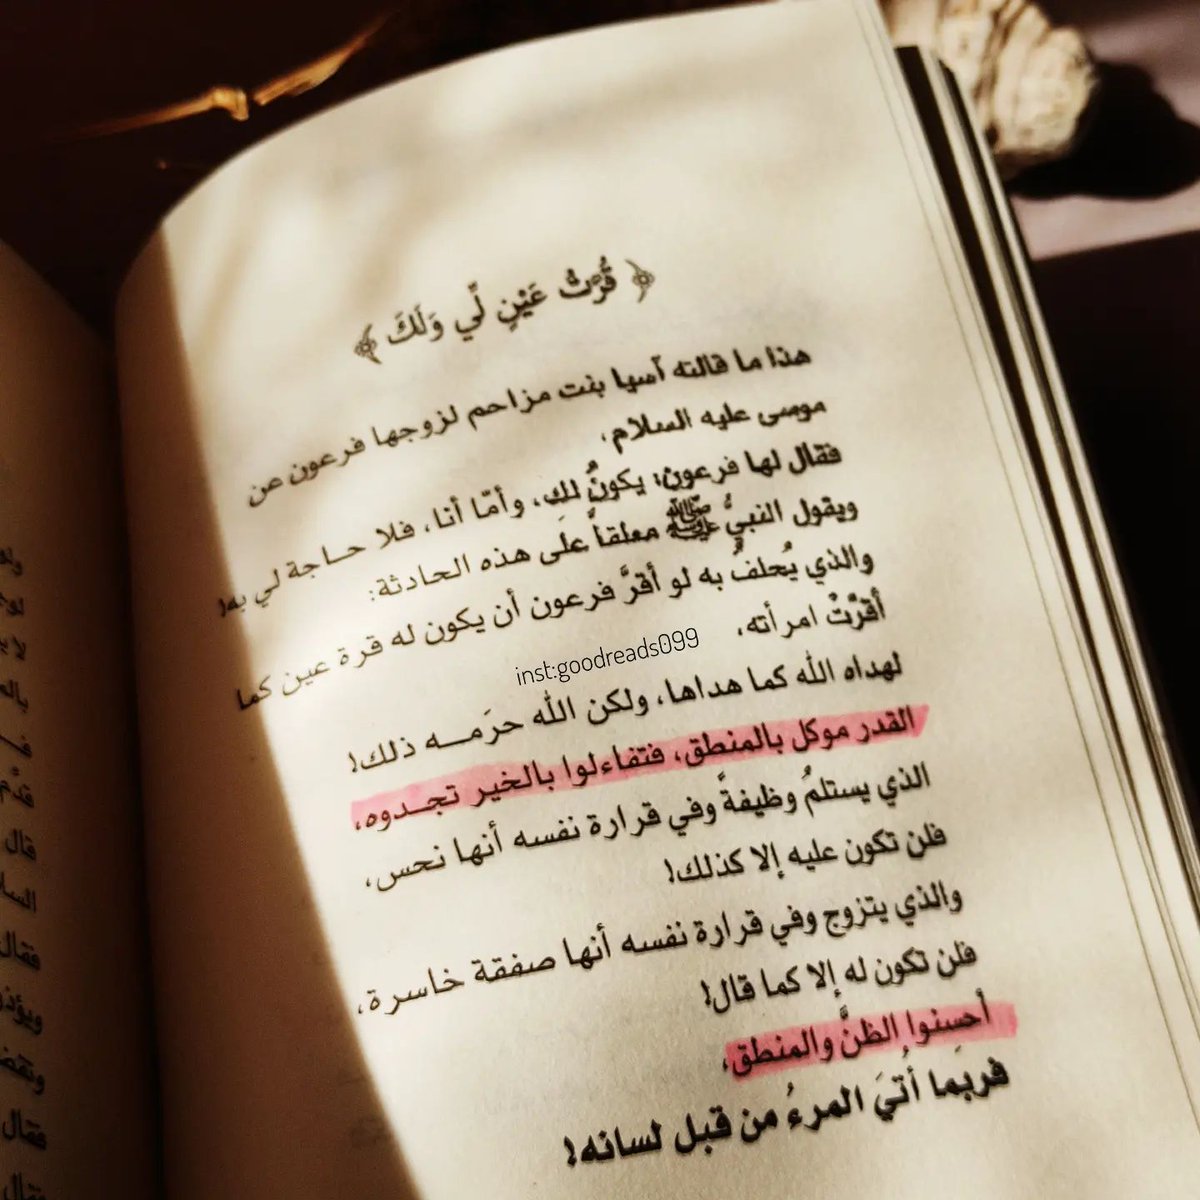 ﴿ قُرَّتُ عَيْنٍ لِّي وَلَكَ ﴾
هذا ما قالته آسيا بنت مزاحم لزوجها فرعون عن
موسى عليه السلام.
فقال لها فرعون: يكونُ لكِ، وأمّا أنا، فلا حاجة لي به!
ويقول النبيُّ ﷺ معلقاً على هذه الحادثة:
والذي يُحلفُ به لو أقرَّ فرعون أن يكون له قرة عين كما
أقرَّتْ امرأته،
inst:goodreads099
لهداه الله كما هداها، ولكن الله حرَمه ذلك!
القدر موكل بالمنطق، فتفاءلوا بالخير تجدوه،
الذي يستلمُ وظيفةً وفي قرارة نفسه أنها نحس،
فلن تكون عليه إلا كذلك!
والذي يتزوج وفي قرارة نفسه أنها صفقة خاسرة،
فلن تكون له إلا كما قال!
أحسنوا الظنَّ والمنطق،
فربما أُتيَ المرءُ من قبل لسانه!
قال
فقال
فقال